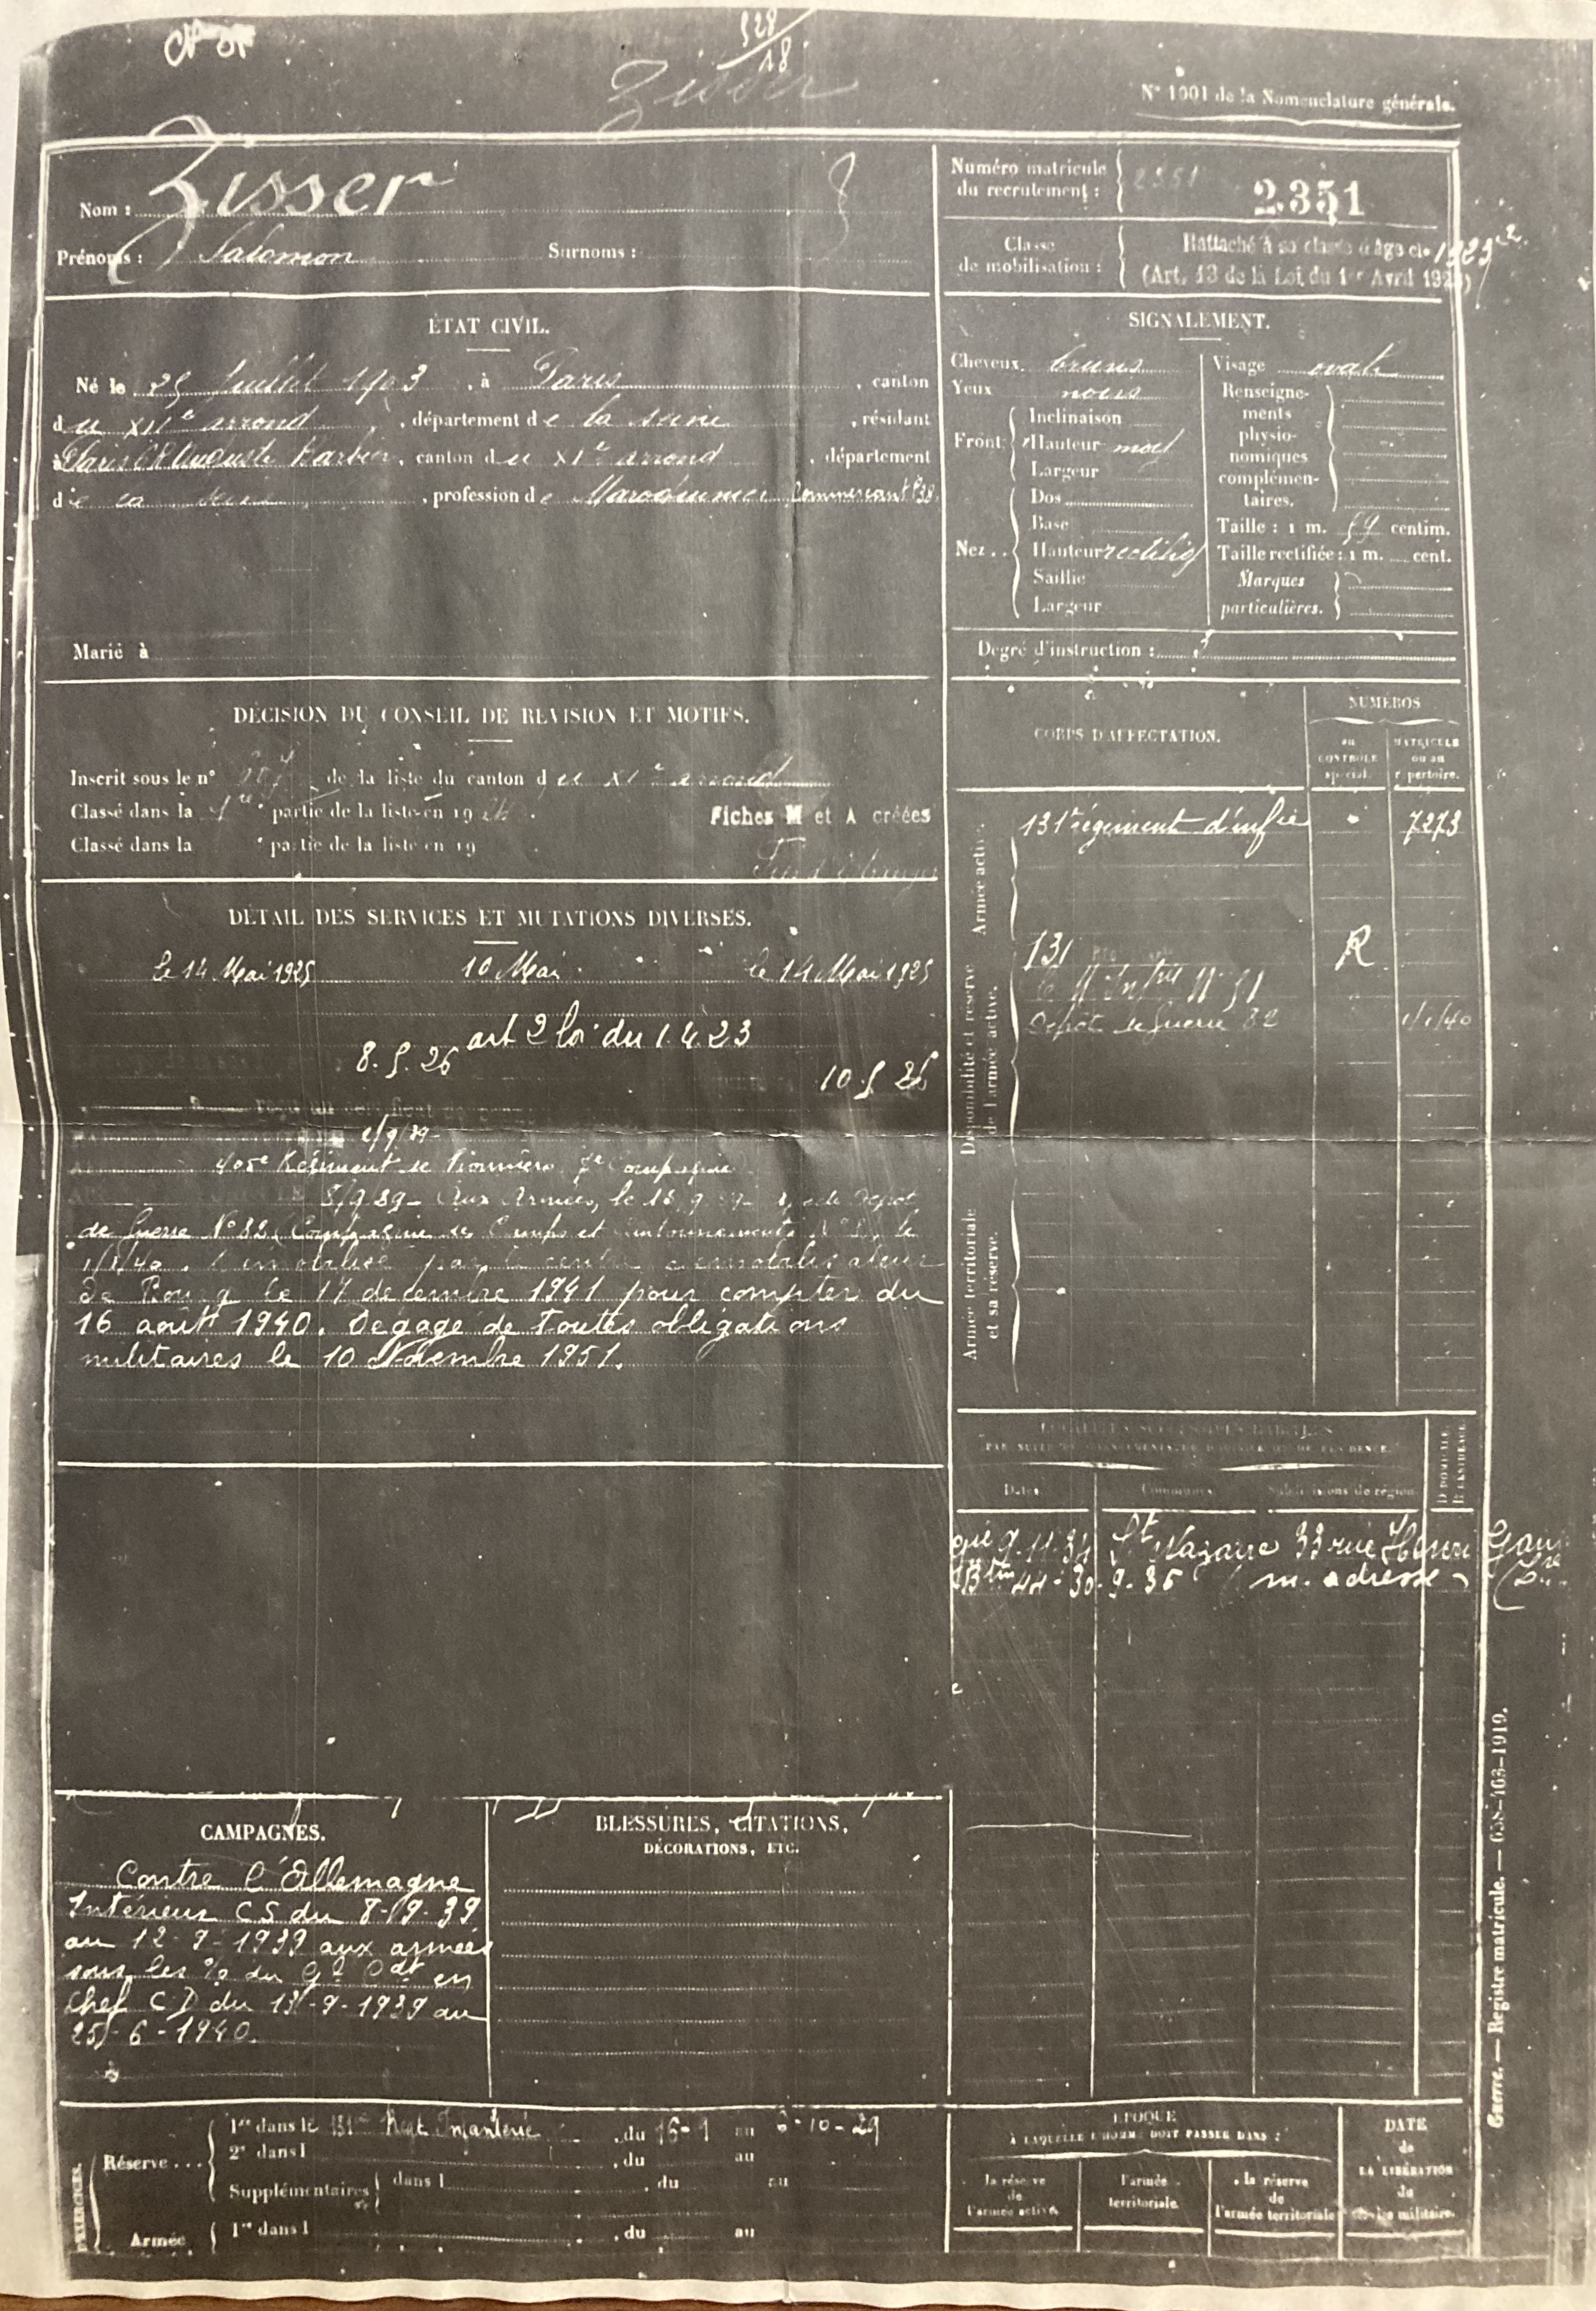 128
18
Zisser
N° 1001 de la Nomenclature générale.
Nom : Zisser
Prénoms : Salomon Surnoms :
Numéro matricule du recrutement : 2351 2351
Classe de mobilisation : Rattaché à sa classe d'âge de 1923
(Art. 13 de la Loi du 1er Avril 1923)
ÉTAT CIVIL.
Né le 25 Juillet 1903, à Paris, canton
du XIe arrond, département de la Seine, résidant
à Paris 8 R Auguste Barbier, canton du XIe arrond, département
de la Seine, profession de Maroquinier Commerçant
Marié à
SIGNALEMENT.
Cheveux bruns
Yeux noirs
Front : Inclinaison
Hauteur moy
Largeur
Nez .. Dos
Base
Hauteur rectilig
Saillie
Largeur
Visage ovale
Renseignements physionomiques complémentaires.
Taille : 1 m. 59 centim.
Taille rectifiée : 1 m. cent.
Marques particulières.
Degré d'instruction : 3
DÉCISION DU CONSEIL DE RÉVISION ET MOTIFS.
Inscrit sous le n° de la liste du canton du XIe arrond
Classé dans la 1re partie de la liste en 19
Fiches M et A créées
Classé dans la partie de la liste en 19
CORPS D'AFFECTATION.
NUMÉROS
au CONTROLE spécial.
MATRICULE ou au répertoire.
Armée active.
131e régiment d'infie 7273
Disponibilité et réserve de l'armée active.
131 R
Dépôt de Guerre 82 1/1/40
Armée territoriale et sa réserve.
DÉTAIL DES SERVICES ET MUTATIONS DIVERSES.
le 14 Mai 1925 10 Mai le 14 Mai 1925
art 2 loi du 1.4.23
8.5.26 10.5.26
405e Régiment de Pionniers 7e Compagnie
8/9/39 - Aux Armées, le 13/9/39
de Guerre N° 82 (Compagnie des Camps et Cantonnements
1/1/40. Démobilisé par le centre démobilisateur
de Bourg le 17 décembre 1941 pour compter du
16 août 1940. Dégagé de toutes obligations
militaires le 10 Novembre 1951.
LOCALITÉS SUCCESSIVES HABITÉES
PAR SUITE DE CHANGEMENTS DE DOMICILE OU DE RÉSIDENCE.
Dates Communes Subdivisions de région
D DOMICILE R RÉSIDENCE
9-11-34 St Nazaire 33 rue Henri Gau
44-30-9-35 (m. adresse)
CAMPAGNES.
Contre l'Allemagne
Intérieur CS du 8-9-39
au 12-9-1939 aux armées
sous les % du Gl Cdt en
Chef CD du 13-9-1939 au
25-6-1940.
BLESSURES, CITATIONS,
DÉCORATIONS, ETC.
EXERCICES.
Réserve ... 1re dans le 131e Regt Infanterie du 16-9 au 6-10-29
2e dans l du au
Supplémentaires dans l du au
Armée 1re dans l du au
ÉPOQUE
À LAQUELLE L'HOMME DOIT PASSER DANS :
la réserve de l'armée active.
l'armée territoriale.
la réserve de l'armée territoriale
DATE de LA LIBÉRATION du service militaire.
Guerre. — Registre matricule. — 638-463-1919.